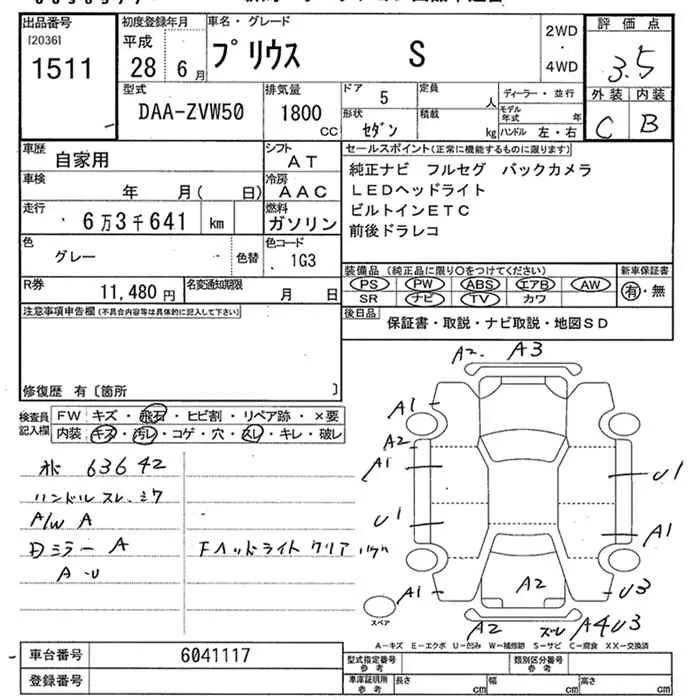 出品番号 初度登録年月 車名・グレード 評価点
[2036] 平成 プリウス S 2WD・4WD 3.5
1511 28年 6月
外装 内装
C B
型式 排気量 ドア 5 定員 人 ディーラー・並行
DAA-ZVW50 1800 CC 形状 セダン 積載 kg モデル年式 年
ハンドル 左・右
車歴 自家用 シフト AT
車検 年 月( 日) 冷房 AAC
走行 6万3千641 km 燃料 ガソリン
色 グレー 色替 色コード 1G3
R券 11,480円 名変通知期限 月 日
セールスポイント(正常に機能するものに限ります)
純正ナビ フルセグ バックカメラ
LEDヘッドライト
ビルトインETC
前後ドラレコ
装備品(純正品に限り○をつけてください) 新車保証書
PS PW ABS エアB AW 有・無
SR ナビ TV カワ
後日品 保証書・取説・ナビ取説・地図SD
注意事項申告欄(不具合内容等は具体的に記入して下さい)
修復歴 有〔箇所 〕
検査員記入欄 FW キズ・飛石・ヒビ割・リペア跡・×要
内装 キズ・汚レ・コゲ・穴・スレ・キレ・破レ
63642
ハンドル スレ、シワ
A/W A
Dミラー A
A-U
Fヘッドライト クリア
A2 A3
A1
A2
A1 U1
U1 A1
A1 A2 U3
A2 スレ A4 U3
スペア
A-キズ E-エクボ U-凹み W-補修跡 S-サビ C-腐食 XX-交換済
車台番号 6041117
登録番号
型式指定番号 参考 類別区分番号 参考
車庫証明所 参考 長さ cm 幅 cm 高さ cm